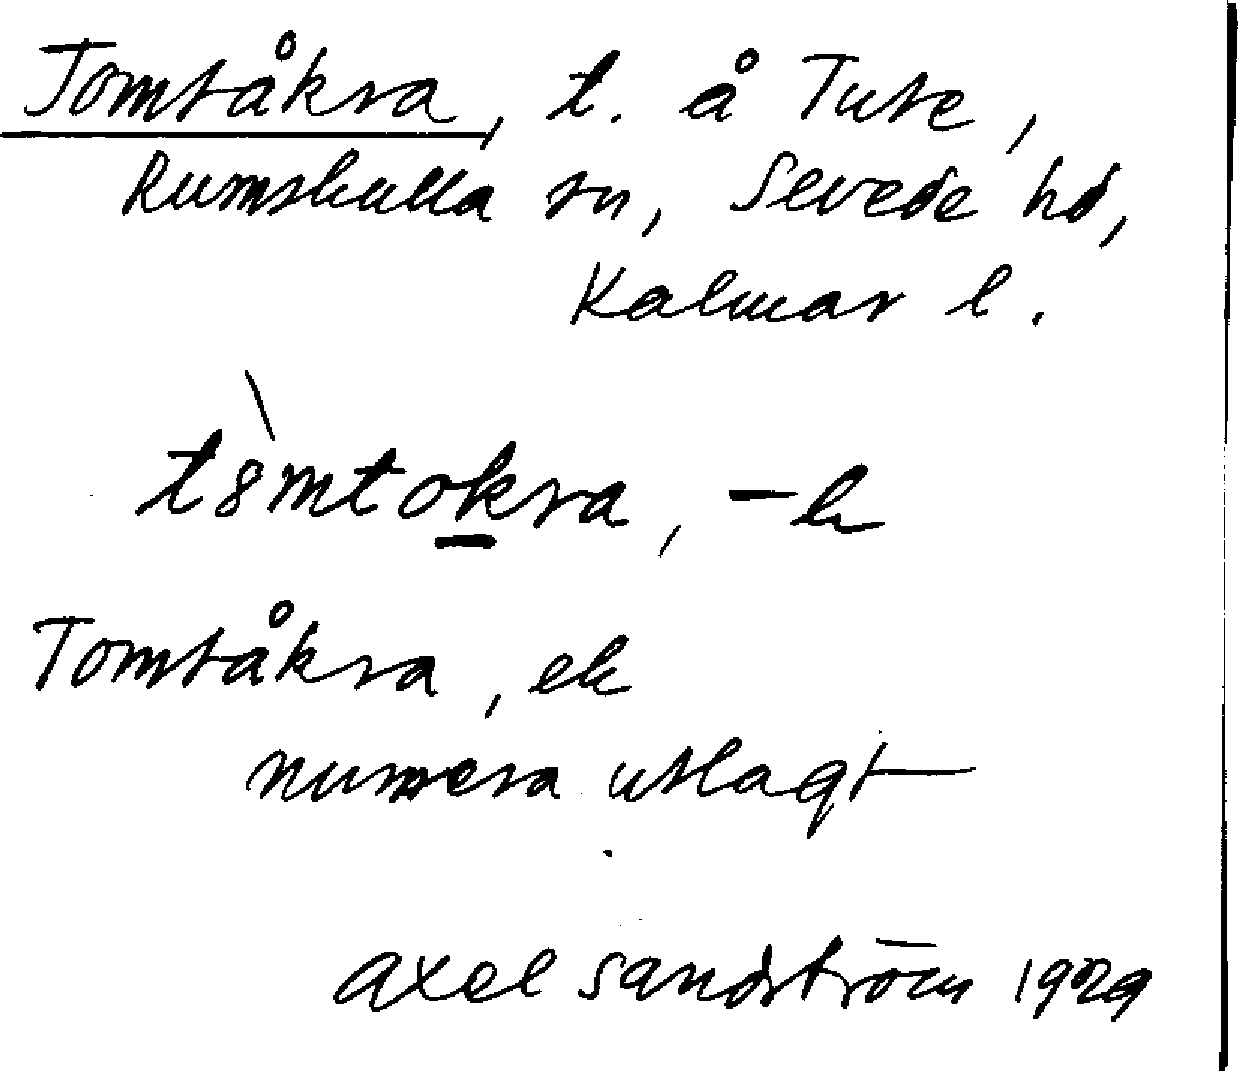 Tomtåkra, t. å Tute,
Rumskulla sn, Sevede hd,
Kalmar l.
Tomtåkra, ek
numera utlagt
Axel Sandström 1929